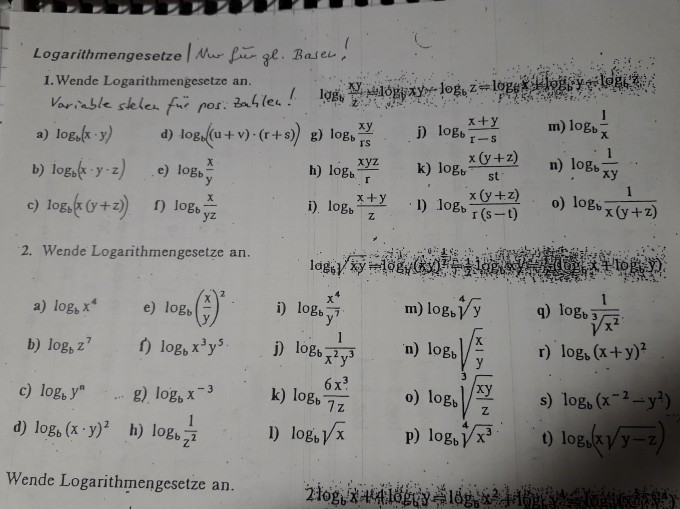 Logarithmengesetze | Nur für gl. Basen!
1. Wende Logarithmengesetze an.
Variable stehen für pos. Zahlen!
log_b xy/z = log_b xy - log_b z = log_b x + log_b y - log_b z
a) log_b(x · y) d) log_b((u + v) · (r + s)) g) log_b xy/rs j) log_b (x + y)/(r - s) m) log_b 1/x
b) log_b(x · y · z) e) log_b x/y h) log_b xyz/r k) log_b x(y + z)/st n) log_b 1/xy
c) log_b(x(y + z)) f) log_b x/yz i) log_b (x + y)/z l) log_b x(y + z)/r(s - t) o) log_b 1/x(y + z)
2. Wende Logarithmengesetze an.
log_b √xy = log_b (xy)^½ = ½ log_b xy = ½(log_b x + log_b y)
a) log_b x⁴ e) log_b (x/y)² i) log_b x⁴/y⁷ m) log_b ⁴√y q) log_b 1/³√x²
b) log_b z⁷ f) log_b x³y⁵ j) log_b 1/x²y³ n) log_b √(x/y) r) log_b (x + y)²
c) log_b yⁿ g) log_b x⁻³ k) log_b 6x³/7z o) log_b ³√(xy/z) s) log_b (x⁻² - y²)
d) log_b (x · y)² h) log_b 1/z² l) log_b √x p) log_b ⁴√x³ t) log_b(x√(y - z))
Wende Logarithmengesetze an.
2 log_b x + 4 log_b y = log_b x² + log_b y⁴